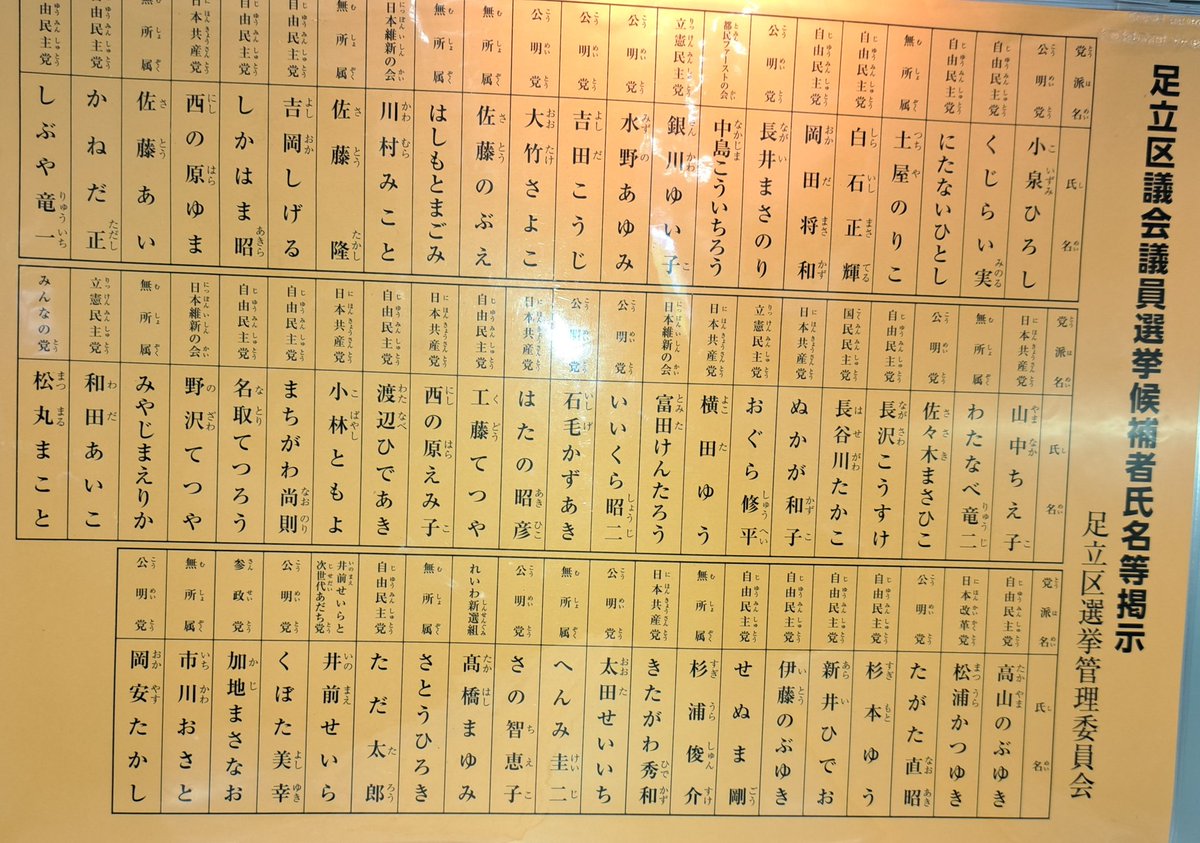 足立区議会議員選挙候補者氏名等掲示
足立区選挙管理委員会
党派名 氏名
公明党 小泉ひろし
自由民主党 くじらい実
自由民主党 にたないひとし
無所属 土屋のりこ
自由民主党 白石正輝
自由民主党 岡田将和
公明党 長井まさのり
都民ファーストの会 中島こういちろう
立憲民主党 銀川ゆい子
公明党 水野あゆみ
公明党 吉田こうじ
公明党 大竹さよこ
無所属 佐藤のぶえ
無所属 はしもとまごみ
日本維新の会 川村みこと
無所属 佐藤隆
自由民主党 吉岡しげる
自由民主党 しかはま昭
日本共産党 西の原ゆま
無所属 佐藤あい
自由民主党 かねだ正
自由民主党 しぶや竜一
党派名 氏名
日本共産党 山中ちえ子
無所属 わたなべ竜二
公明党 佐々木まさひこ
自由民主党 長沢こうすけ
国民民主党 長谷川たかこ
日本共産党 ぬかが和子
立憲民主党 おぐら修平
日本共産党 横田ゆう
日本維新の会 富田けんたろう
公明党 いいくら昭二
公明党 石毛かずあき
日本共産党 はたの昭彦
自由民主党 工藤てつや
日本共産党 西の原えみ子
自由民主党 渡辺ひであき
日本共産党 小林ともよ
自由民主党 まちがわ尚則
自由民主党 名取てつろう
日本維新の会 野沢てつや
無所属 みやじまえりか
立憲民主党 和田あいこ
みんなの党 松丸まこと
党派名 氏名
自由民主党 高山のぶゆき
日本改革党 松浦かつゆき
公明党 たがた直昭
自由民主党 杉本ゆう
自由民主党 新井ひでお
自由民主党 伊藤のぶゆき
自由民主党 せぬま剛
無所属 杉浦俊介
日本共産党 きたがわ秀和
公明党 太田せいいち
無所属 へんみ圭二
公明党 さの智恵子
れいわ新選組 髙橋まゆみ
無所属 さとうひろき
自由民主党 ただ太郎
井前せいらと次世代あだち党 井前せいら
公明党 くぼた美幸
参政党 加地まさなお
無所属 市川おさと
公明党 岡安たかし